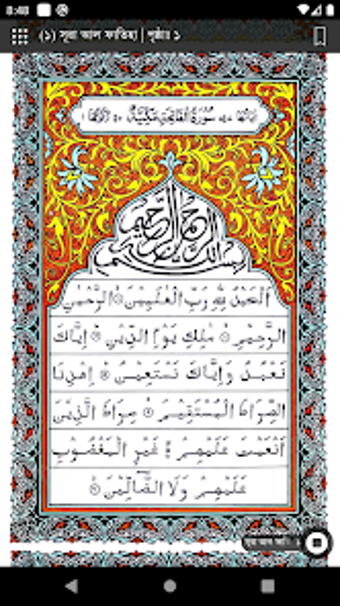 8:48
(১) সূরা আল ফাতিহা | পৃষ্ঠাঃ ১
سُوْرَةُ الْفَاتِحَةِ مَكِّيَّةٌ
بسم الله الرحمن الرحيم
اَلْحَمْدُ لِلّٰهِ رَبِّ الْعٰلَمِيْنَ ۝ الرَّحْمٰنِ
الرَّحِيْمِ ۝ مٰلِكِ يَوْمِ الدِّيْنِ ۝ اِيَّاكَ
نَعْبُدُ وَاِيَّاكَ نَسْتَعِيْنُ ۝ اِهْدِنَا
الصِّرَاطَ الْمُسْتَقِيْمَ ۝ صِرَاطَ الَّذِيْنَ
اَنْعَمْتَ عَلَيْهِمْ ۙ غَيْرِ الْمَغْضُوْبِ
عَلَيْهِمْ وَلَا الضَّآلِّيْنَ ۝
সূরা আল ফা